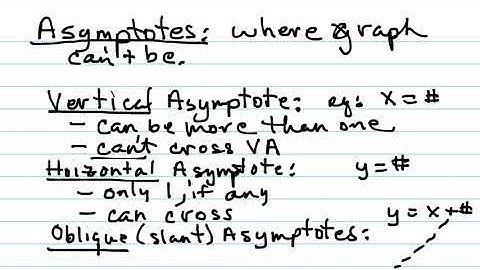 Asymptotes: where graph
can't be.
Vertical Asymptote: eg: x = #
- can be more than one
- can't cross VA
Hoizontal Asymptote: y = #
- only 1, if any
- can cross
y = x + #
Oblique (slant) Asymptotes: